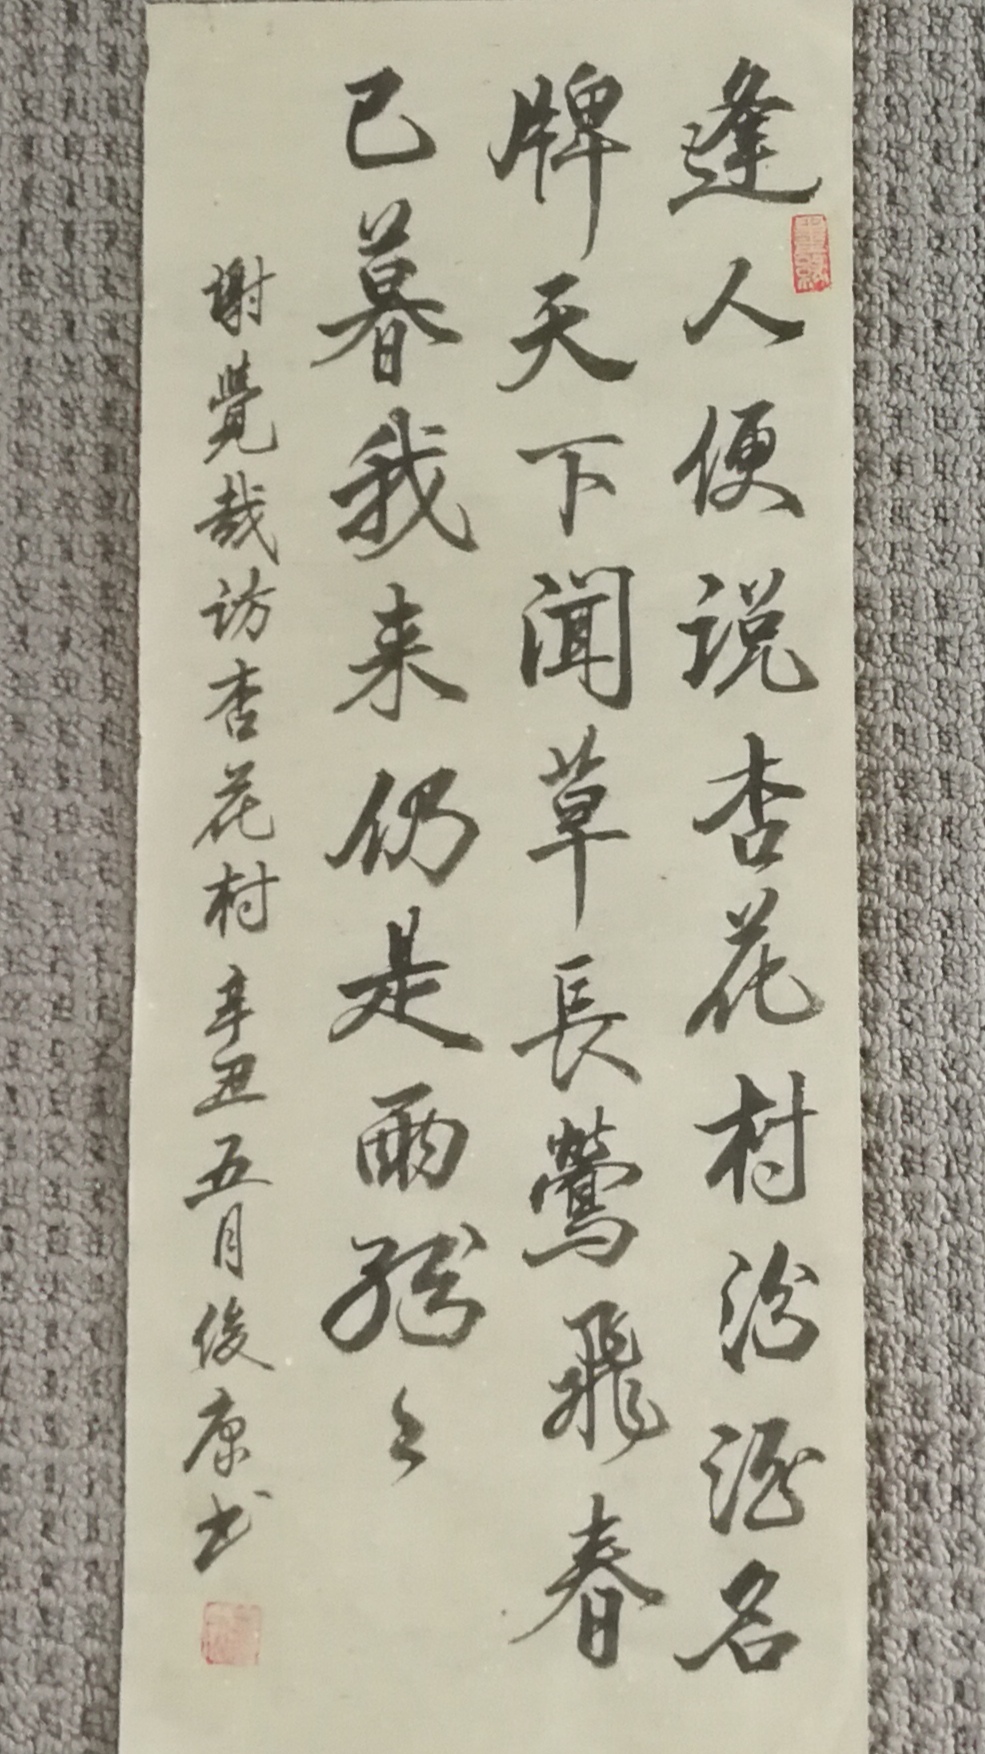 逢人便说杏花村汾酒名
牌天下闻草長鶯飛春
已暮我来仍是雨纷々
謝覺哉访杏花村辛丑五月俊康书